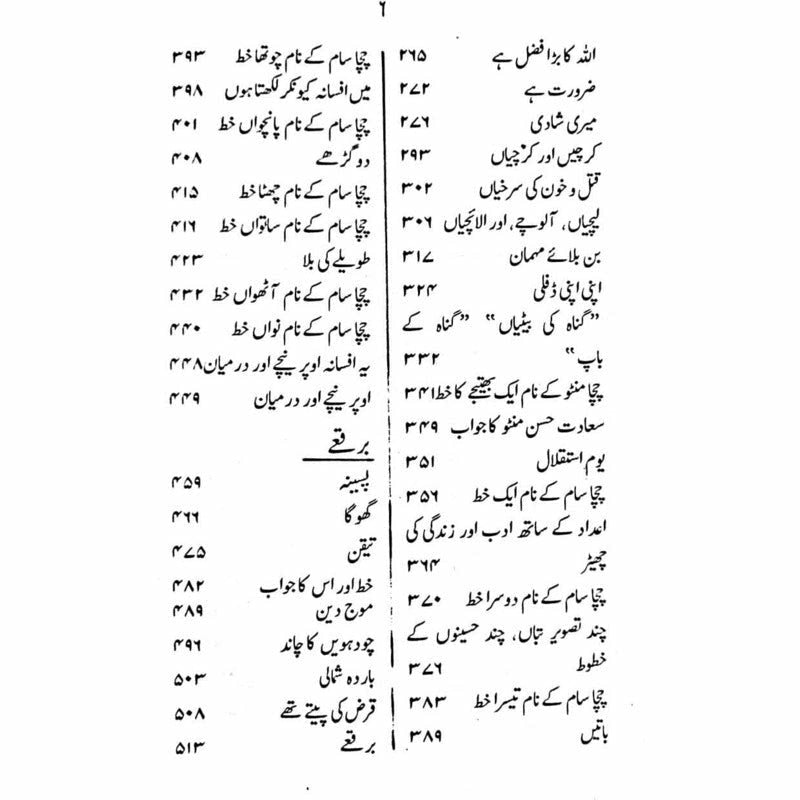 ٦
اللہ کا بڑا فضل ہے ۲۶۵
ضرورت ہے ۲۷۲
میری شادی ۲۷۶
کرچیں اور کرچیاں ۲۹۳
قتل و خون کی سرخیاں ۳۰۲
لیچیاں، آلوچے، اور الائچیاں ۳۰۶
بن بلائے مہمان ۳۱۷
اپنی اپنی ڈفلی ۳۲۴
”گناہ کی بیٹیاں“ ”گناہ کے
باپ“ ۳۳۲
چچا منٹو کے نام ایک بھتیجے کا خط ۳۴۱
سعادت حسن منٹو کا جواب ۳۴۹
یوم استقلال ۳۵۱
چچا سام کے نام ایک خط ۳۵۶
اعداد کے ساتھ ادب اور زندگی کی
چھیڑ ۳۶۴
چچا سام کے نام دوسرا خط ۳۷۰
چند تصویر بتاں، چند حسینوں کے
خطوط ۳۷۶
چچا سام کے نام تیسرا خط ۳۸۳
باتیں ۳۸۹
چچا سام کے نام چوتھا خط ۳۹۳
میں افسانہ کیونکر لکھتا ہوں ۳۹۸
چچا سام کے نام پانچواں خط ۴۰۱
دو گڑھے ۴۰۸
چچا سام کے نام چھٹا خط ۴۱۵
چچا سام کے نام ساتواں خط ۴۱۶
طویلے کی بلا ۴۲۳
چچا سام کے نام آٹھواں خط ۴۳۲
چچا سام کے نام نواں خط ۴۴۰
یہ افسانہ اوپر نیچے اور درمیان ۴۴۸
اوپر نیچے اور درمیان ۴۴۹
برقعے
پسینہ ۴۵۹
گھوگا ۴۶۶
تیقن ۴۷۵
خط اور اس کا جواب ۴۸۲
موج دین ۴۸۹
چودہویں کا چاند ۴۹۶
باردہ شمالی ۵۰۳
قرض کی پیتے تھے ۵۰۸
برقعے ۵۱۳